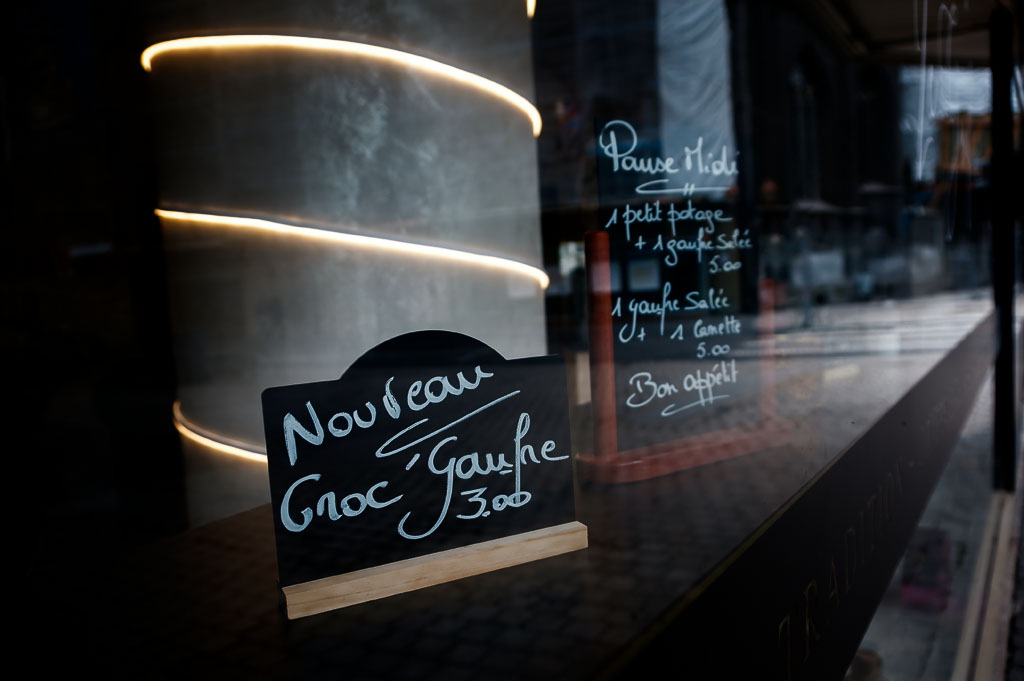 Nouveau
Croc'Gaufre
3.00
Pause Midi
1 petit potage
+ 1 gaufre Salée
5.00
1 gaufre Salée
+ 1 Canette
5.00
Bon appétit
TRADITION